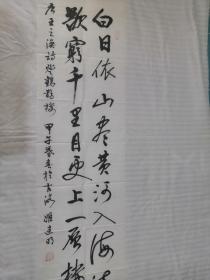 白日依山尽黄河入海流
欲穷千里目更上一层楼
唐王之涣诗登鹳雀楼 甲午春